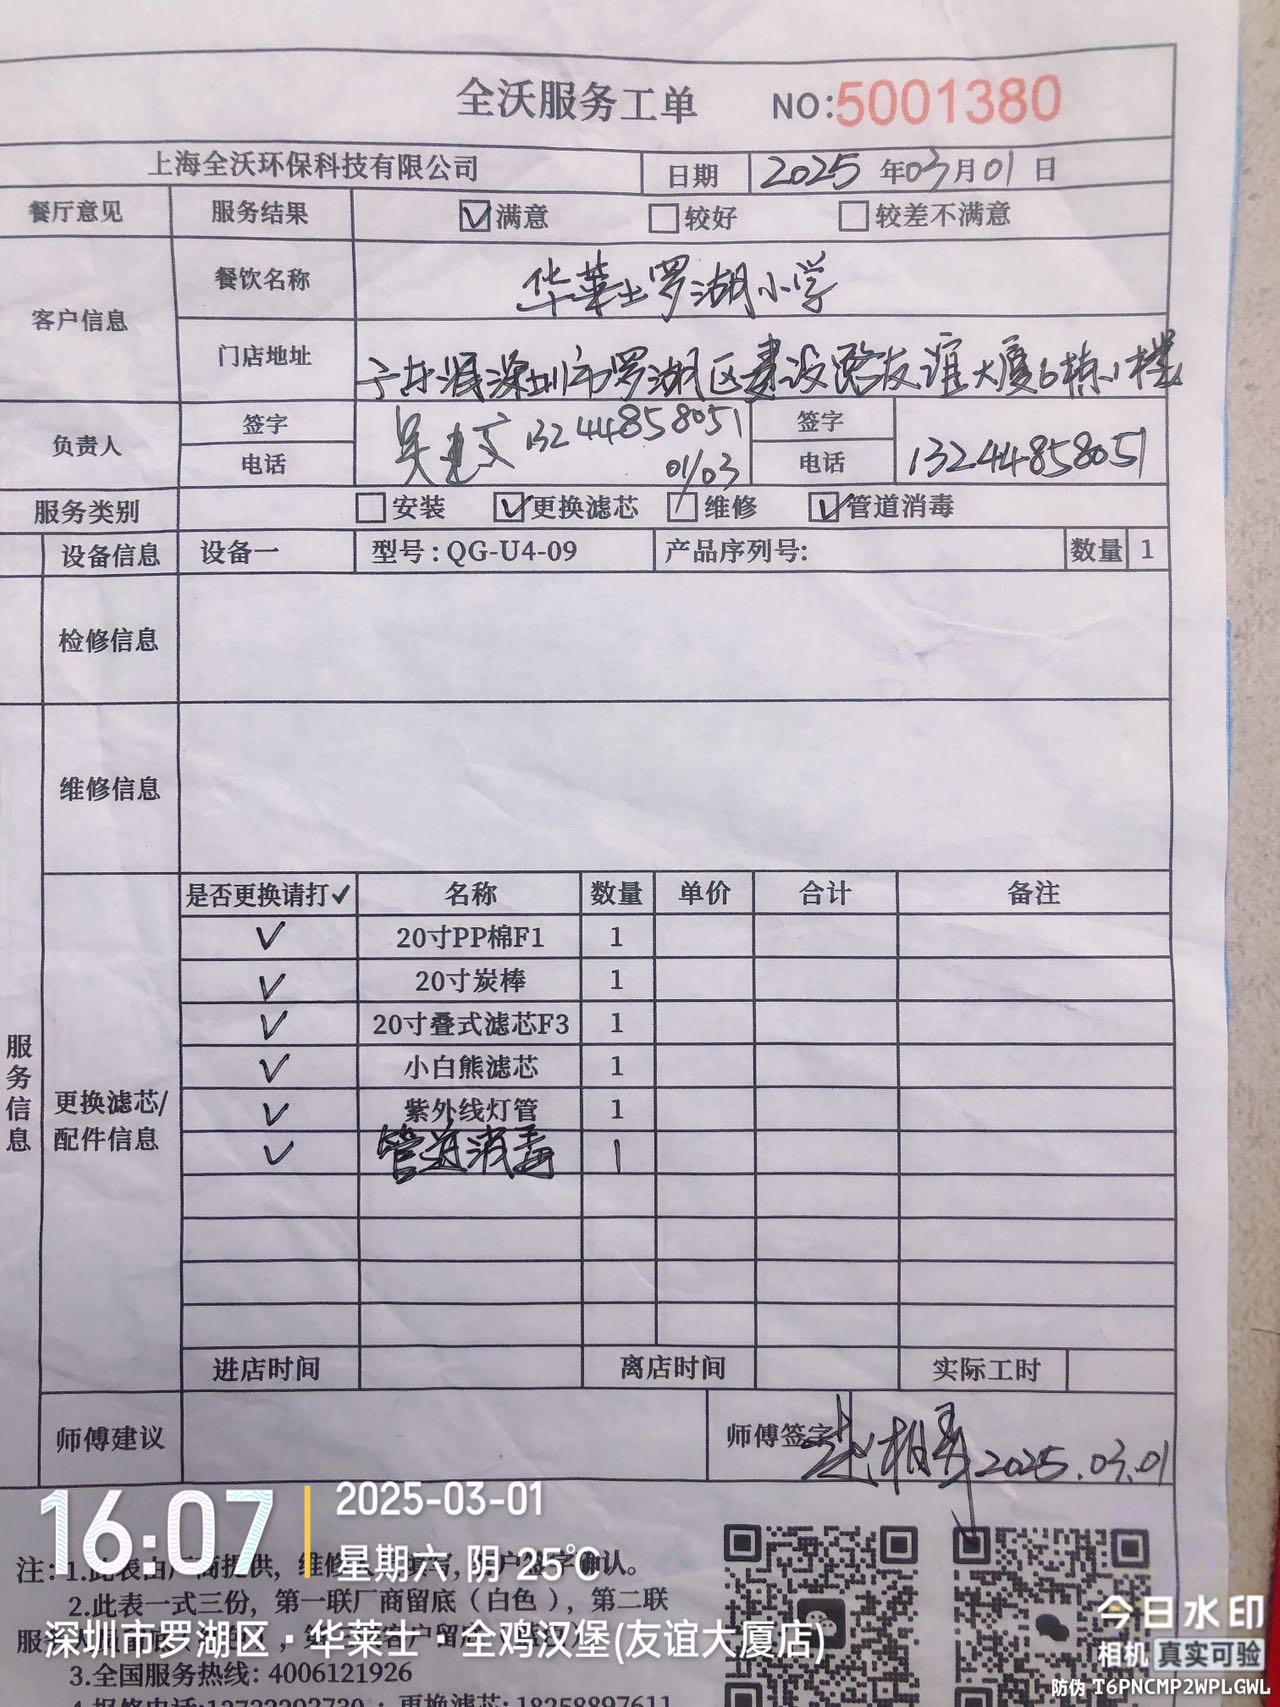 全沃服务工单 NO:5001380
上海全沃环保科技有限公司 日期 2025年03月01日
餐厅意见 服务结果 ☑满意 ☐较好 ☐较差不满意
客户信息
餐饮名称 华莱士罗湖小学
门店地址 广东深圳市罗湖区建设路友谊大厦6栋1楼
负责人 签字 电话 吴 13244858051 签字 电话 13244858051
01/03
服务类别 ☐安装 ☑更换滤芯 ☐维修 ☑管道消毒
设备信息 设备一 型号:QG-U4-09 产品序列号: 数量 1
检修信息
维修信息
服务信息
更换滤芯/
配件信息
是否更换请打✓ 名称 数量 单价 合计 备注
✓ 20寸PP棉F1 1
✓ 20寸炭棒 1
✓ 20寸叠式滤芯F3 1
✓ 小白熊滤芯 1
✓ 紫外线灯管 1
✓ 管道消毒 1
进店时间 离店时间 实际工时
师傅建议 师傅签字 2025.03.01
16:07 2025-03-01
星期六 阴 25℃
深圳市罗湖区·华莱士·全鸡汉堡(友谊大厦店)
注: 1.此表由厂商提供，维修 写，客户签字确认。
2.此表一式三份，第一联厂商留底（白色），第二联
3.全国服务热线: 4006121926
今日水印
相机 真实可验
防伪 T6PNCMP2WPLGWL